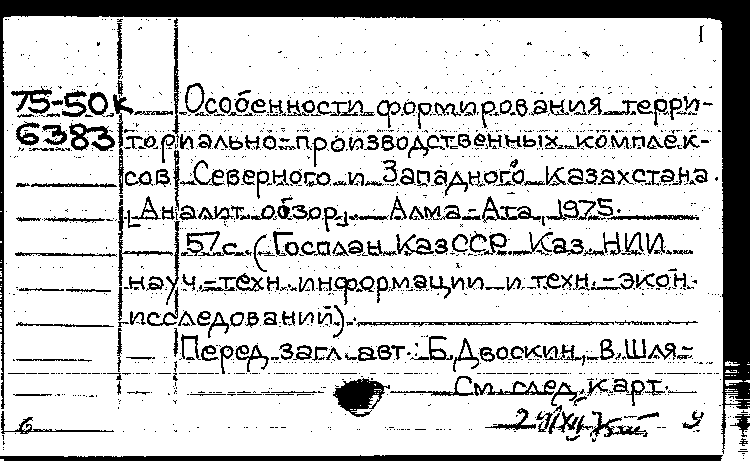 75-50к
6383
Особенности формирования терри-
ториально-производственных комплек-
сов Северного и Западного Казахстана.
[Аналит. обзор]. Алма-Ата, 1975.
57 с. (Госплан КазССР. Каз. НИИ
науч.-техн. информации и техн.-экон.
исследований).
Перед загл. авт.: Б. Двоскин, В. Шля-
См. след. карт.
6